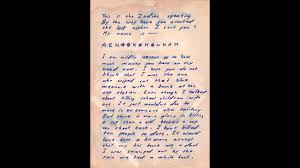 This is the Zodiac speaking
By the way have you cracked
the last cipher I sent you?
My name is —
I am mildly cerous as to how
much money you have on my
head now. I hope you do not
think that I was the one
who wiped out that blue
meannie with a bomb at the
cop station. Even though I talked
about killing school children with
one. It just wouldnt doo to
move in on someone elses teritory.
But there is more glory in killing
a cop than a cid because a cop
can shoot back. I have killed
ten people to date. It would
have been a lot more except
that my bus bomb was a dud.
I was swamped out by the
rain we had a while back.